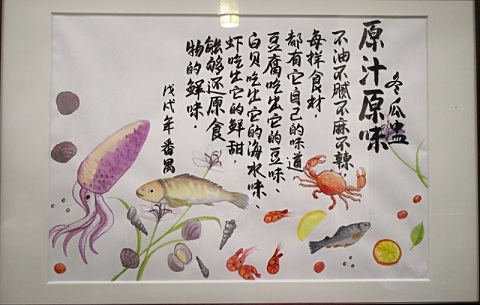 原汁原味
冬瓜盅
不油不腻不麻不辣,
每样食材,
都有它自己的味道,
豆腐吃出它的豆味、
白贝吃出它的海水味、
虾吃出它的鲜甜,
能够还原食
物的鲜味。
戊戌年番禺